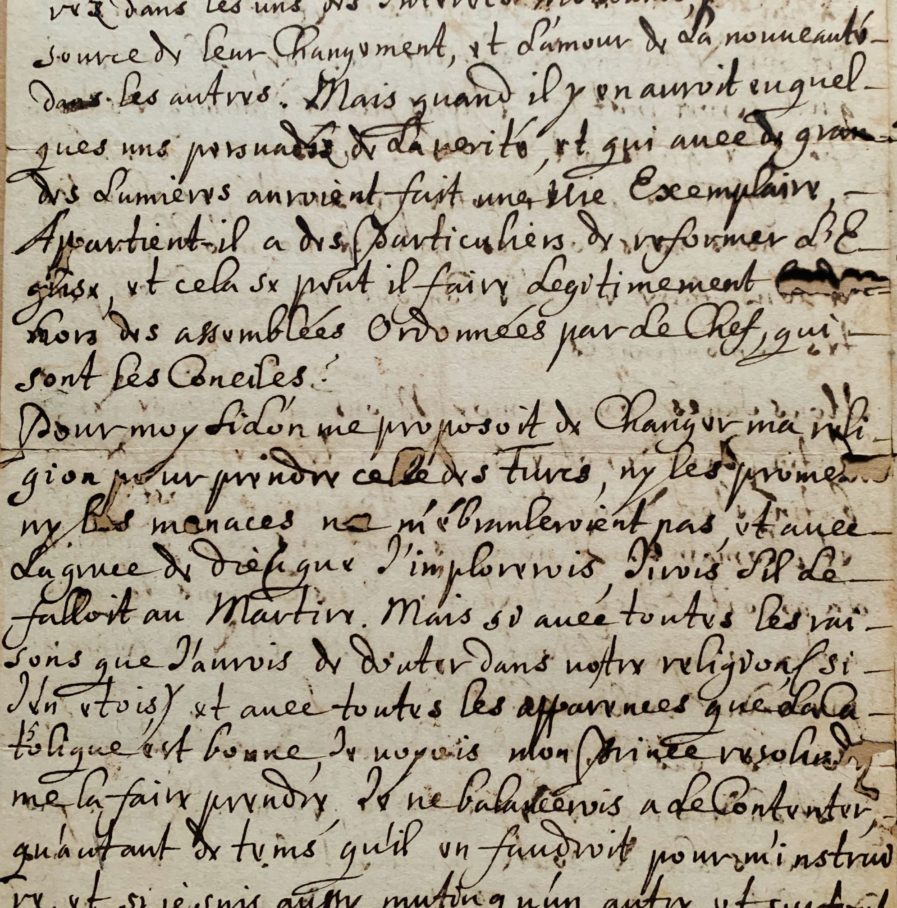 rez dans les uns des Interets
source de leur Changement, et L'amour de La nouveauté
dans les autres. Mais quand il y en auroit en quel-
ques uns persuadés de La verité, et qui avec de gran-
des Lumières auroient fait une vie Exemplaire,
Appartient-il a des particuliers de reformer L'E-
glise, et cela se peut il faire Legitimement
hors des assemblées Ordonnées par Le Chef, qui
sont les Conciles?
Pour moy si L'on me proposoit de Changer ma reli-
gion pour prendre celle des Turcs, ny les promes
ny les menaces ne m'ébranleroient pas, et avec
La grace de dieu que J'implorerois, J'irois s'il Le
falloit au Martire. Mais si avec toutes les rai-
sons que J'aurois de douter dans notre religion (si
J'en etois) et avec toutes les apparences que La Ca-
tolique est bonne, Je voyois mon Prince resolu de
me la faire prendre, Je ne balancerois a Le Contenter,
qu'autant de tems qu'il en faudroit pour m'instrui
re, et si je suis aussy mutin qu'un autre, et